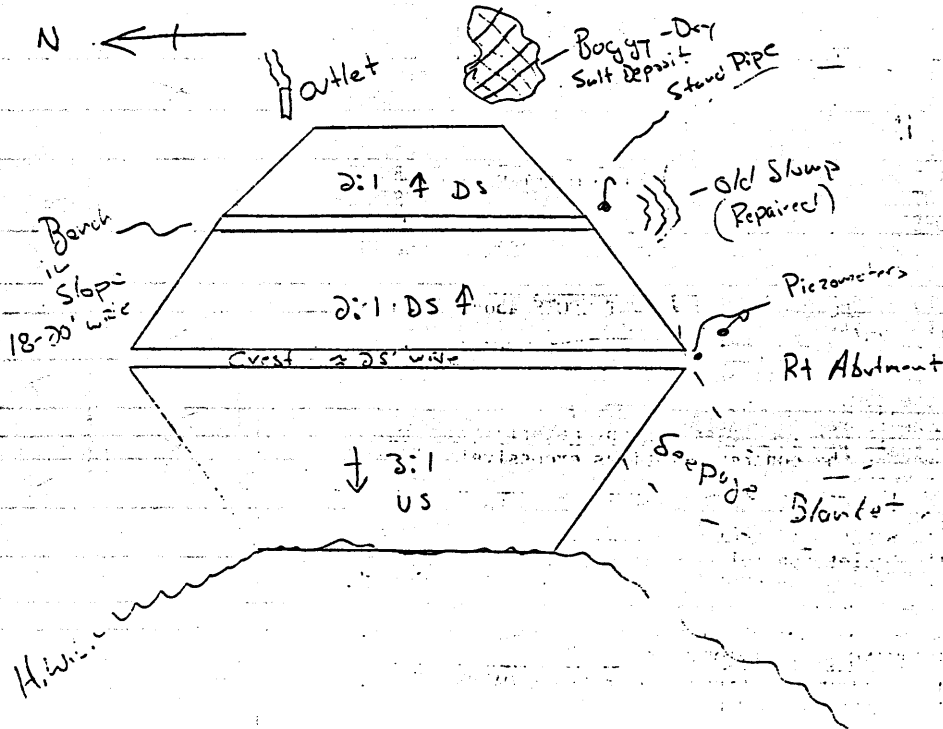 N
outlet
Boggy-Dry
Salt Deposit
Stand Pipe
2:1 ↑ DS
Old Slump
(Repaired)
Bench
in
Slope
18-20' wide
2:1 DS ↑
Piezometers
Crest ≈ 25' wide
Rt Abutment
↓ 3:1
US
Seepage
Blanket